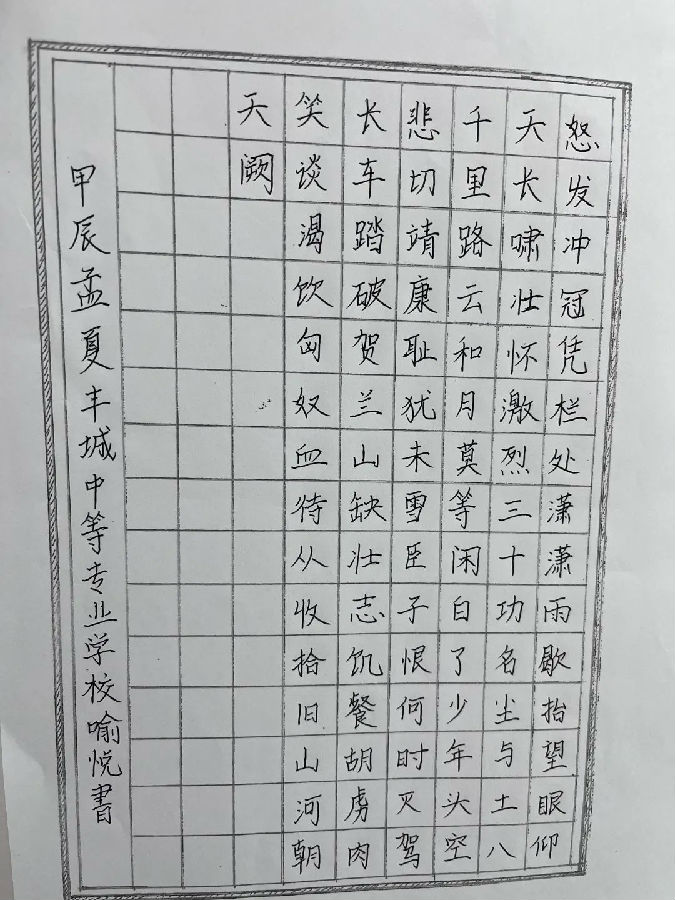 怒发冲冠凭栏处潇潇雨歇抬望眼仰
天长啸壮怀激烈三十功名尘与土八
千里路云和月莫等闲白了少年头空
悲切靖康耻犹未雪臣子恨何时灭驾
长车踏破贺兰山缺壮志饥餐胡虏肉
笑谈渴饮匈奴血待从收拾旧山河朝
天阙
甲辰孟夏丰城中等专业学校喻悦書